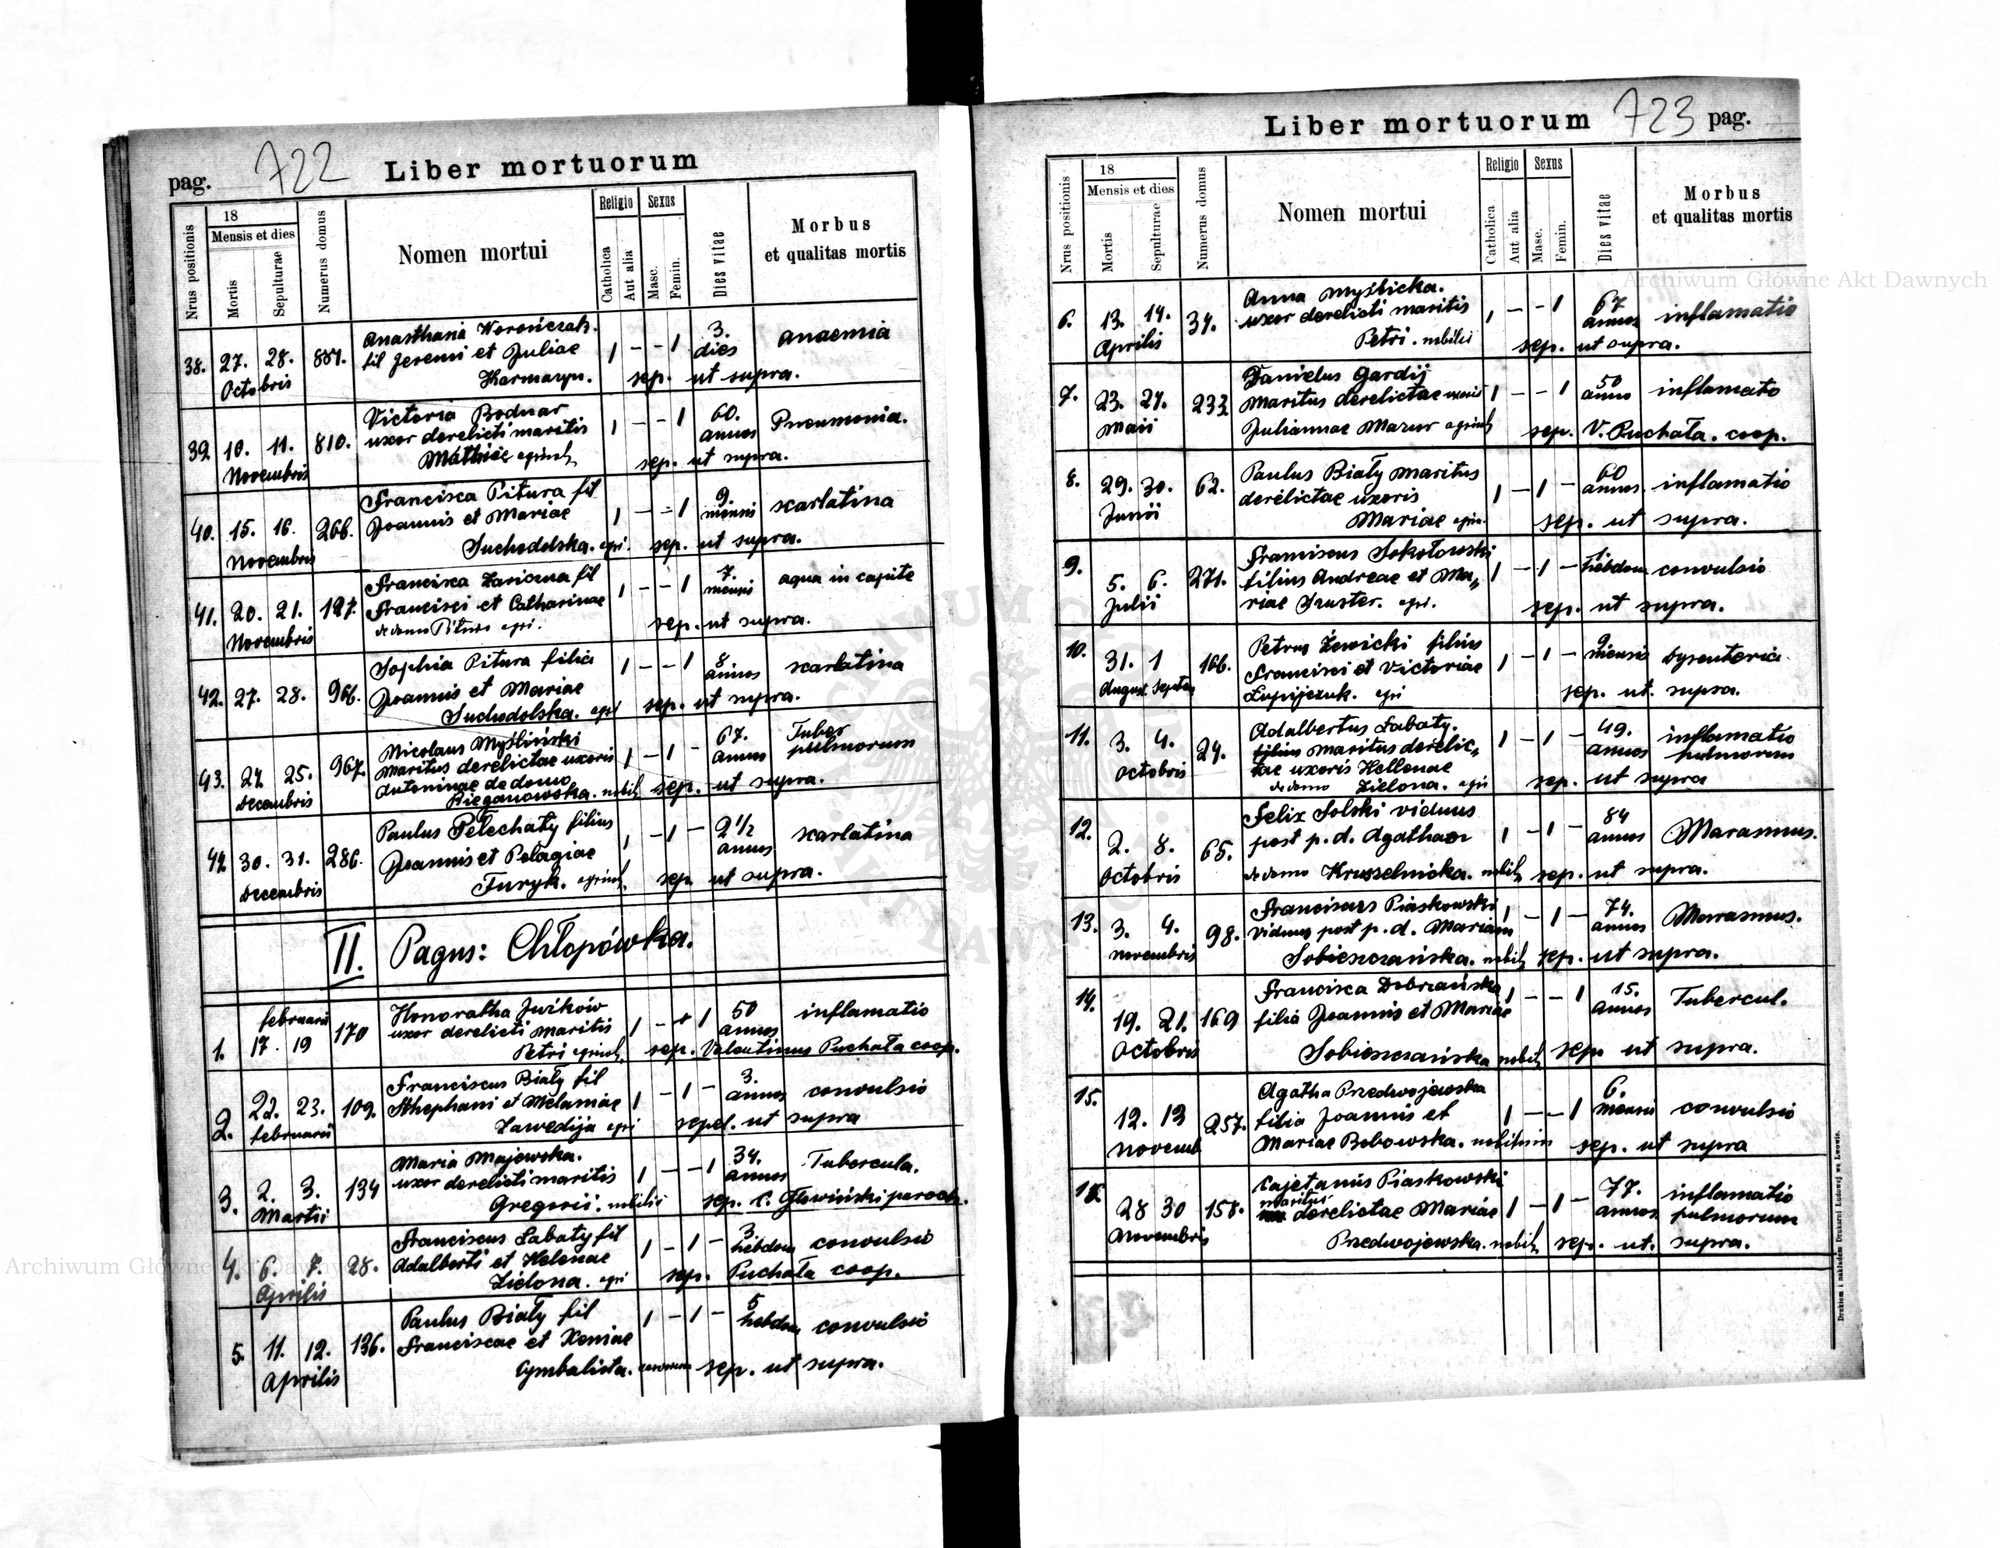 pag. 722 Liber mortuorum
Nrus positionis
18
Mensis et dies
Mortis
Sepulturae
Numerus domus
Nomen mortui
Religio
Catholica
Aut alia
Sexus
Masc.
Femin.
Dies vitae
Morbus
et qualitas mortis
38. 27. 28. Octobris 887. Anasthasia Worończak. 1 - - 1 3. dies anaemia
fil Jeremi et Juliae
Harmaryn. sep. ut supra.
39. 10. 11. Novembris 810. Victoria Bodnar 1 - - 1 60. annos Pneumonia.
uxor derelicti maritis
Mathiae agricol. sep. ut supra.
40. 15. 16. Novembris 266. Francisca Pitura fil 1 - - 1 9. mensis scarlatina
Joannis et Mariae
Suchodolska. agri. sep. ut supra.
41. 20. 21. Novembris 127. Francisca Lariczna fil 1 - - 1 7. mensis aqua in capite
Francisci et Catharinae
de domo Pitura agri. sep. ut supra.
42. 27. 28. 966. Sophia Pitura filia 1 - - 1 8 annos scarlatina
Joannis et Mariae
Suchodolska. agri sep. ut supra.
43. 24. 25. Decembris 967. Nicolaus Myśliński 1 - 1 - 67. annos Tuber pulmorum
Maritus derelictae uxoris
Antoninae de domo
Bieganowska. nobil. sep. ut supra.
44. 30. 31. Decembris 286. Paulus Pelechaty filius 1 - 1 - 2 1/2 annos scarlatina
Joannis et Pelagiae
Furyk. agricol. sep. ut supra.
II. Pagus: Chłopówka.
1. Februarii 17. 19 170 Honoratha Juźków 1 - + 1 50 annos inflamatio
uxor derelicti maritis
Petri agricol. sep. Valentinus Puchała coop.
2. 22. 23. Februarii 109. Franciscus Biały fil 1 - 1 - 3. annos convulsio
Sthephani et Melaniae
Zawedija agri sepel. ut supra
3. 2. 3. Martii 134 Maria Majewska. 1 - - 1 34. annos Tubercula.
uxor derelicti maritis
Gregorii. nobilis sep. C. Głowiński paroch.
4. 6. 7. Aprilis 28. Franciscus Labaty fil 1 - 1 - 3 hebdom convulsio
Adalberti et Helenae
Zielona. agri sep. Puchała coop.
5. 11. 12. Aprilis 136. Paulus Biały fil 1 - 1 - 5 hebdom convulsio
Franciscae et Xeniae
Cymbalista. sep. ut supra.
Liber mortuorum 723 pag.
Nrus positionis
18
Mensis et dies
Mortis
Sepulturae
Numerus domus
Nomen mortui
Religio
Catholica
Aut alia
Sexus
Masc.
Femin.
Dies vitae
Morbus
et qualitas mortis
6. 13. 14. Aprilis 34. Anna Myślicka. 1 - - 1 67 annos inflamatio
uxor derelicti maritis
Petri. nobilis sep. ut supra.
7. 23. 24. Maii 233. Danielus Gardij 1 - - 1 50 anno inflamato
Maritus derelictae uxoris
Juliannae Mazur agricol. sep. V. Puchała. coop.
8. 29. 30. Junii 62. Paulus Biały Maritus 1 - 1 - 60 annos. inflamatio
derelictae uxoris
Mariae agri. sep. ut supra.
9. 5. 6. Julii 271. Franciscus Sokołowski 1 - 1 - 1 hebdom convulsio
filius Andreae et Ma„
riae Szuster. agri. sep. ut supra.
10. 31. 1 August. Septem 166. Petrus Żewicki filius 1 - 1 - 2 mensis dysenteria.
Francisci et Victoriae
Łupijczuk. agri sep. ut. supra.
11. 3. 4. Octobris 24. Adalbertus Labaty. 1 - 1 - 49. annos inflamatio pulmorum
filius maritus derelic„
tae uxoris Hellenae
de domo Zielona. agri sep. ut supra
12. 2. 8. Octobris 65. Felix Solski viduus 1 - 1 - 84 annos Marasmus.
post p. d. Agathae
de domo Kruszelnicka. nobil. sep. ut supra.
13. 3. 4. Novembris 98. Franciscus Piaskowski 1 - 1 - 74. annos Marasmus.
viduus post p. d. Mariam
Sobieszczańska. nobil. sep. ut supra.
14. 19. 21. Octobris 169 Francisca Dobrzańska 1 - - 1 15. annos Tubercul.
filia Joannis et Mariae
Sobieszczańska nobil. sep. ut supra.
15. 12. 13 Novemb 257. Agatha Przedwojewska 1 - - 1 6. mensis convulsio
filia Joannis et
Mariae Bobowska. nobilium sep. ut supra
16. 28 30 Novembris 158. Cajetanus Piaskowski 1 - 1 - 77. annos inflamatio pulmorum
maritus
derelictae Mariae
Przedwojewska. nobil. sep. ut. supra.
Drukiem i nakładem Drukarni Ludowej we Lwowie.
Archiwum Główne Akt Dawnych
Archiwum Główne Akt Dawnych